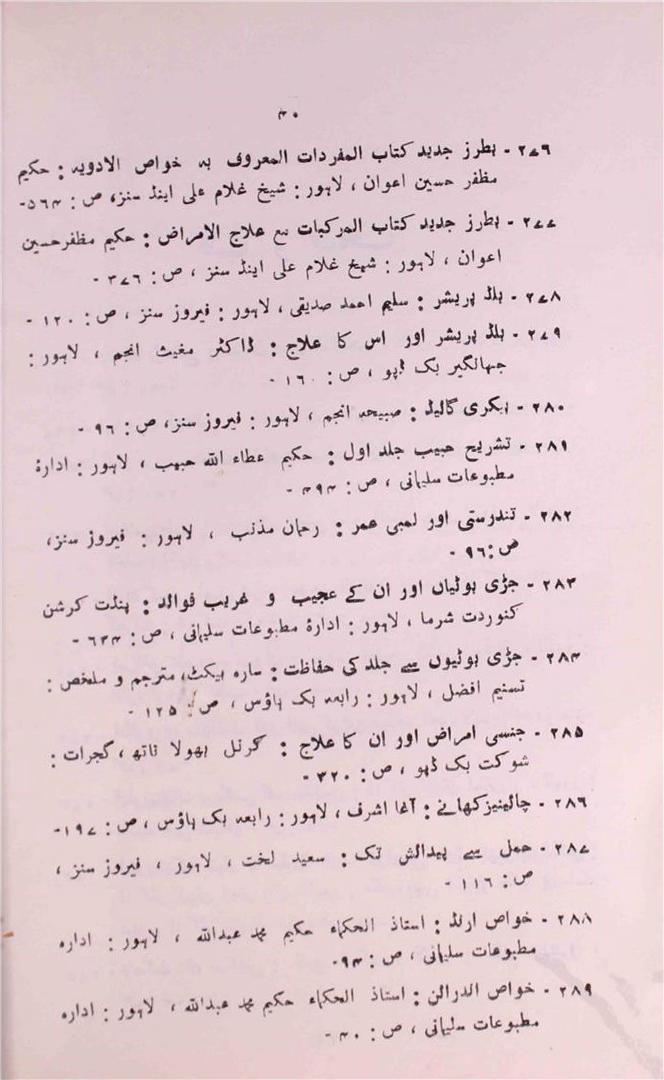 ۴۰
۲۷۶ - بطرز جدید کتاب المفردات المعروف بہ خواص الادویہ : حکیم
مظفر حسین اعوان ، لاہور : شیخ غلام علی اینڈ سنز، ص : ۵۶۴-
۲۷۷ - بطرز جدید کتاب المرکبات مع علاج الامراض : حکیم مظفرحسین
اعوان ، لاہور : شیخ غلام علی اینڈ سنز ، ص : ۳۷۶ -
۲۷۸ - بلڈ پریشر : سلیم احمد صدیقی ، لاہور : فیروز سنز ، ص : ۱۲۰ -
۲۷۹ - بلڈ پریشر اور اس کا علاج : ڈاکٹر مغیث انجم ، لاہور :
جہانگیر بک ڈپو ، ص : ۱۶۰ -
۲۸۰ - بیکری گائیڈ : صبیحہ انجم ، لاہور : فیروز سنز، ص : ۹۶ -
۲۸۱ - تشریح حبیب جلد اول : حکیم عطاء اللہ حبیب ، لاہور : ادارۂ
مطبوعات سلیمانی ، ص : ۴۹۴ -
۲۸۲ - تندرستی اور لمبی عمر : رحمان مذنب ، لاہور : فیروز سنز،
ص : ۹۶ -
۲۸۳ - جڑی بوٹیاں اور ان کے عجیب و غریب فوائد : پنڈت کرشن
کنوردت شرما ، لاہور : ادارۂ مطبوعات سلیمانی ، ص : ۶۴۴ -
۲۸۴ - جڑی بوٹیوں سے جلد کی حفاظت : سارہ بیکٹ، مترجم و ملخص :
تسنیم افضل ، لاہور : رابعہ بک ہاؤس ، ص : ۱۲۵ -
۲۸۵ - جنسی امراض اور ان کا علاج : کرنل بھولا ناتھ ، گجرات :
شوکت بک ڈپو ، ص : ۳۲۰ -
۲۸۶ - چائینیز کھانے : آغا اشرف ، لاہور : رابعہ بک ہاؤس ، ص : ۱۹۷-
۲۸۷ - حمل سے پیدائش تک : سعید لخت ، لاہور ، فیروز سنز ،
ص : ۱۱۶ -
۲۸۸ - خواص ارنڈ : استاذ الحکماء حکیم محمد عبداللہ ، لاہور : ادارہ
مطبوعات سلیمانی ، ص : ۹۴-
۲۸۹ - خواص الدرائن : استاذ الحکماء حکیم محمد عبداللہ ، لاہور : ادارہ
مطبوعات سلیمانی ، ص : ۴۰ -